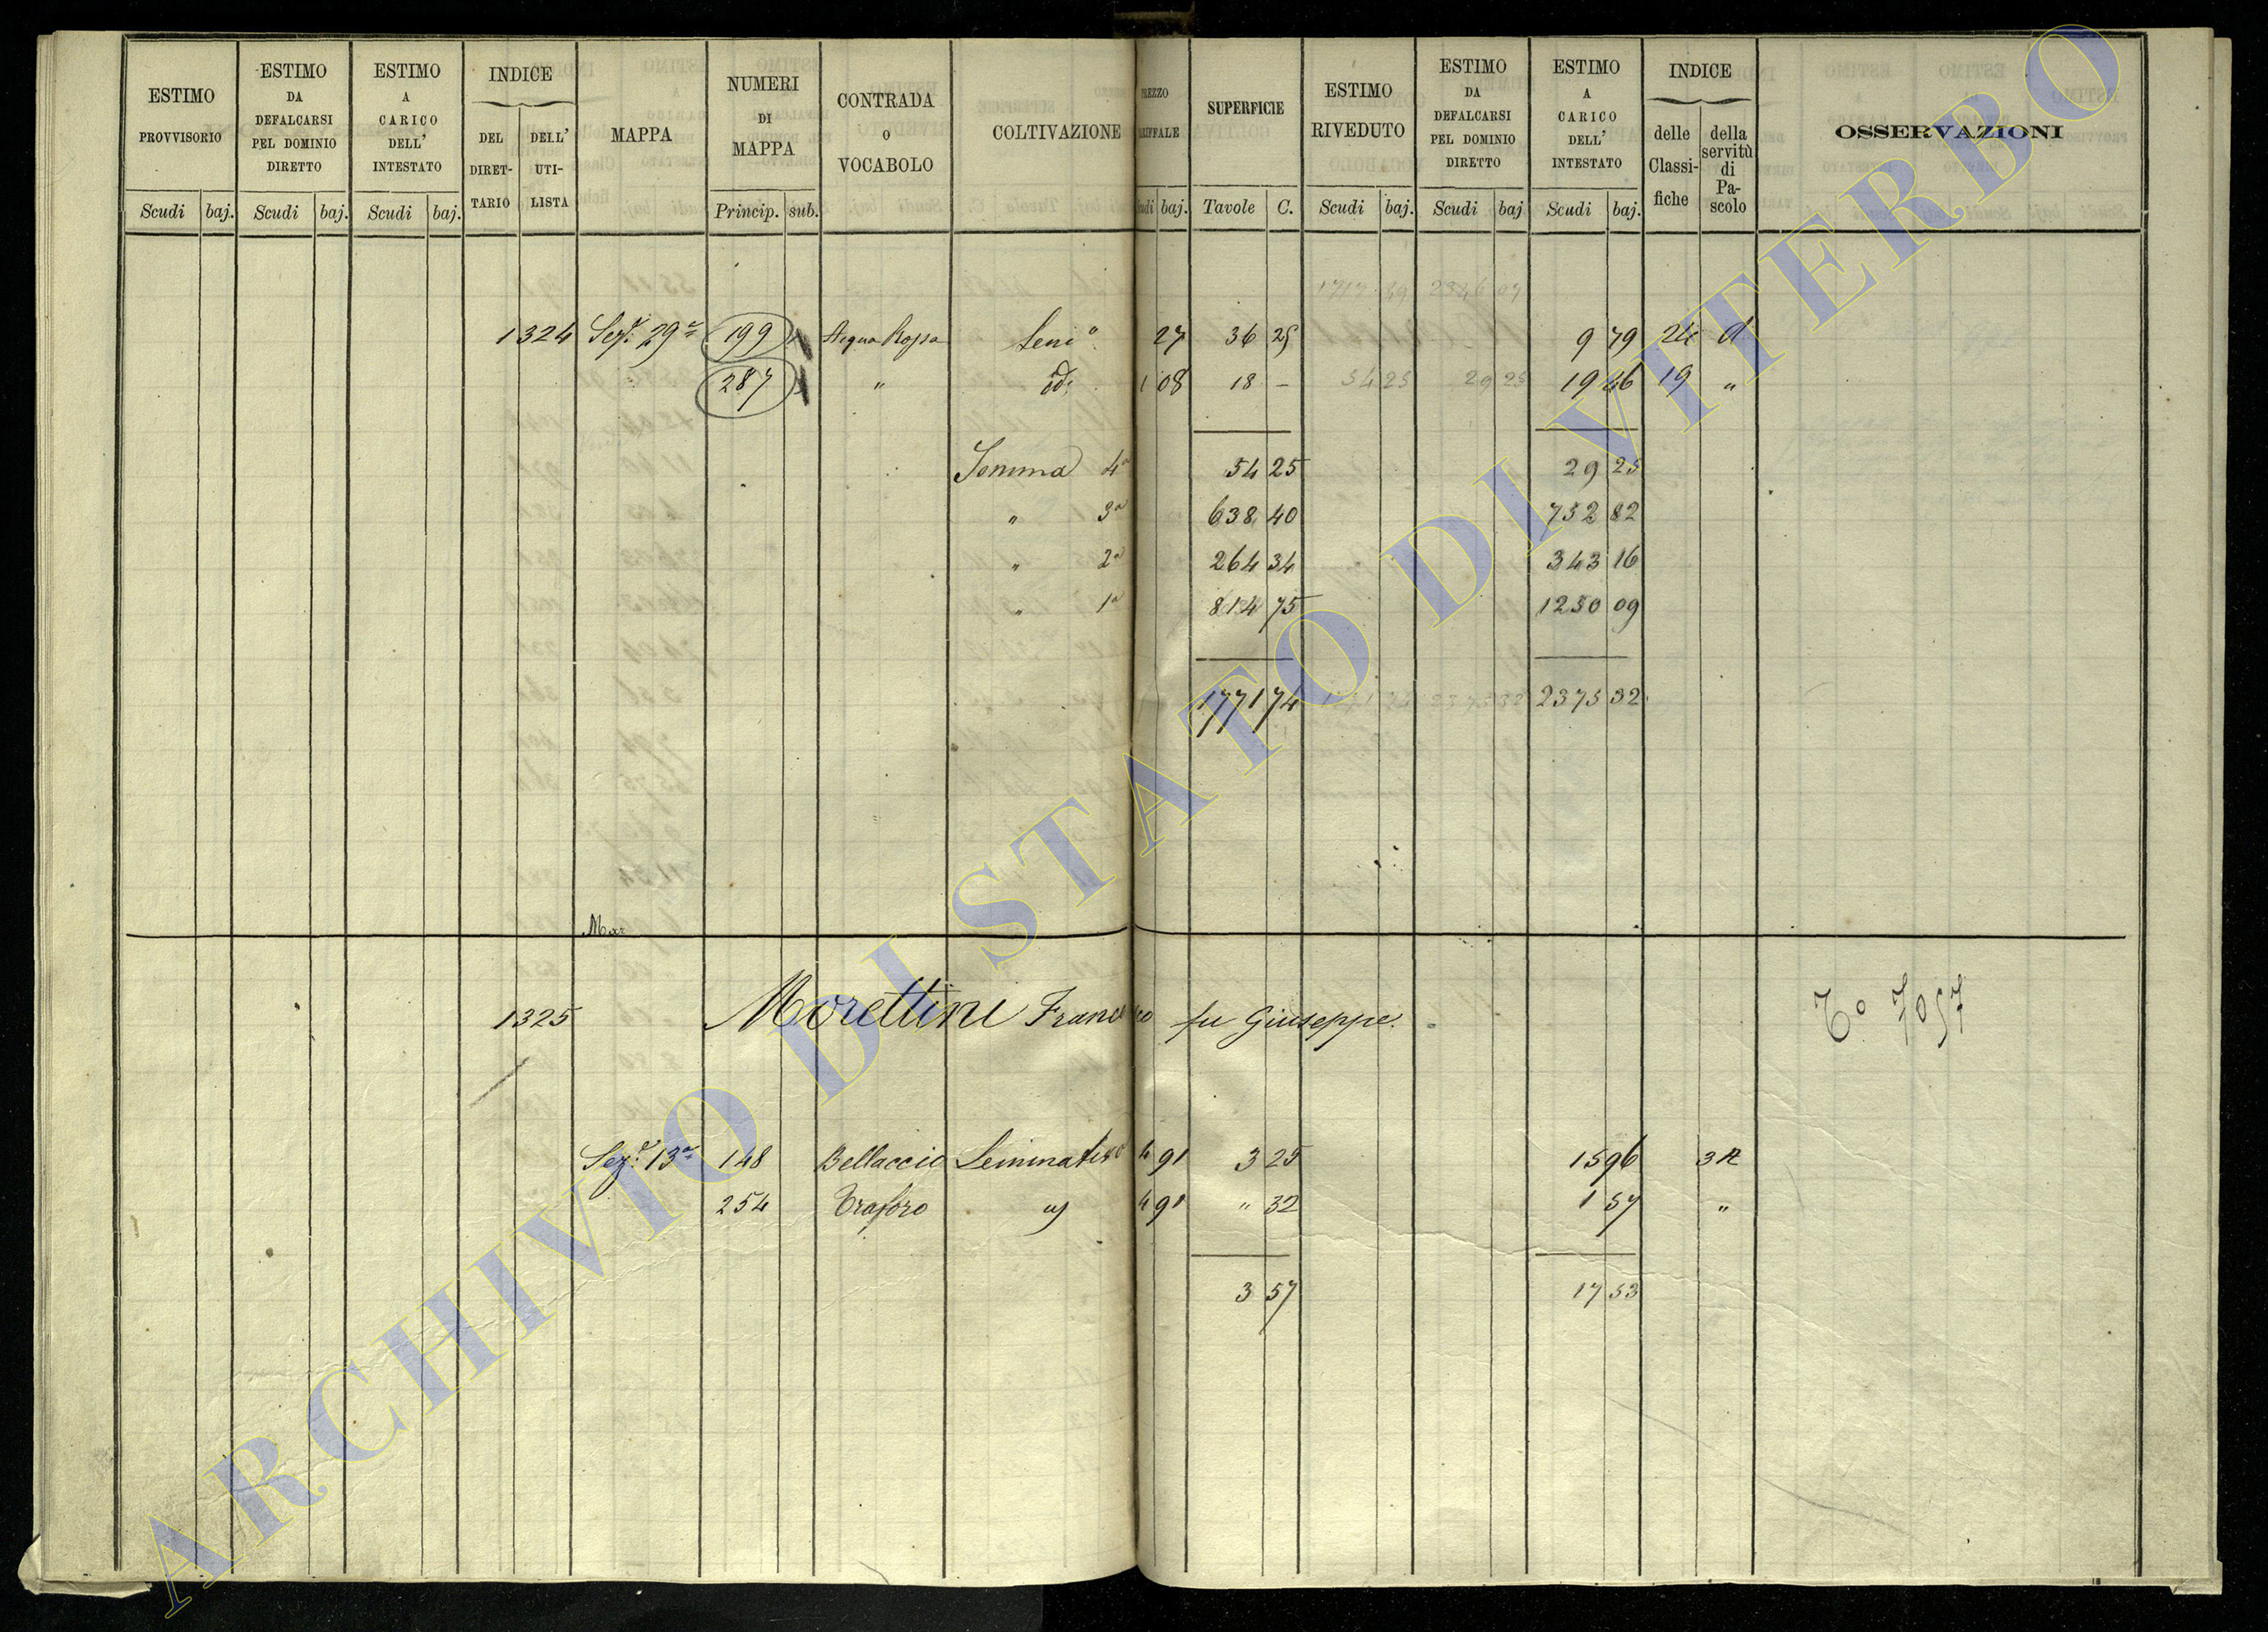 ESTIMO PROVVISORIO | ESTIMO DA DEFALCARSI PEL DOMINIO DIRETTO | ESTIMO A CARICO DELL' INTESTATO | INDICE | MAPPA | NUMERI DI MAPPA | CONTRADA O VOCABOLO | COLTIVAZIONE | SUPERFICIE | ESTIMO RIVEDUTO | ESTIMO DA DEFALCARSI PEL DOMINIO DIRETTO | ESTIMO A CARICO DELL' INTESTATO | INDICE | OSSERVAZIONI
DEL DIRET-TARIO | DELL' UTI-LISTA | delle Classi-fiche | della servitù di Pa-scolo
Scudi | baj. | Scudi | baj. | Scudi | baj. | Princip. | sub. | baj. | Tavole | C. | Scudi | baj. | Scudi | baj | Scudi | baj.
1324 | Sez.e 29a | 199 | Acqua Rossa | Semi° | 27 | 36 | 25 | 9 | 79 | 24 | d
287 | " | id: | 1 | 08 | 18 | – | 54 | 25 | 29 | 25 | 19 | 46 | 19 | "
Somma 4a | 54 | 25 | 29 | 25
" 3a | 638 | 40 | 752 | 82
" 2a | 264 | 34 | 343 | 16
" 1a | 814 | 75 | 1250 | 09
1771 | 74 | 2375 | 32
Mor
1325 | Morettini Francesco fu Giuseppe. | To. 7057
Sez.e 13a | 148 | Bellaccio | Seminativo | 4 | 91 | 3 | 25 | 15 | 96 | 32
254 | Traforo | " | 4 | 91 | " | 32 | 1 | 57 | "
3 | 57 | 17 | 53
ARCHIVIO DI STATO DI VITERBO